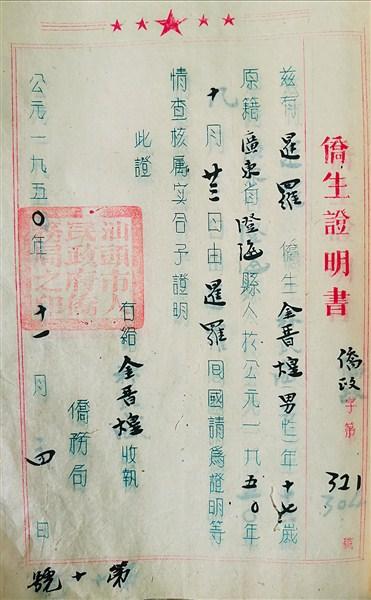 僑生證明書
僑政字第321號
茲有暹羅僑生金晉煌男性年十七歲
原籍廣東省澄海縣人於公元一九五〇年
十月廿三日由暹羅囘國請為證明等
情查核属实合予證明
此證
右給金晉煌收執
僑務局
公元一九五〇年十一月四日
汕頭市人
民政府僑
務局之印
第十號